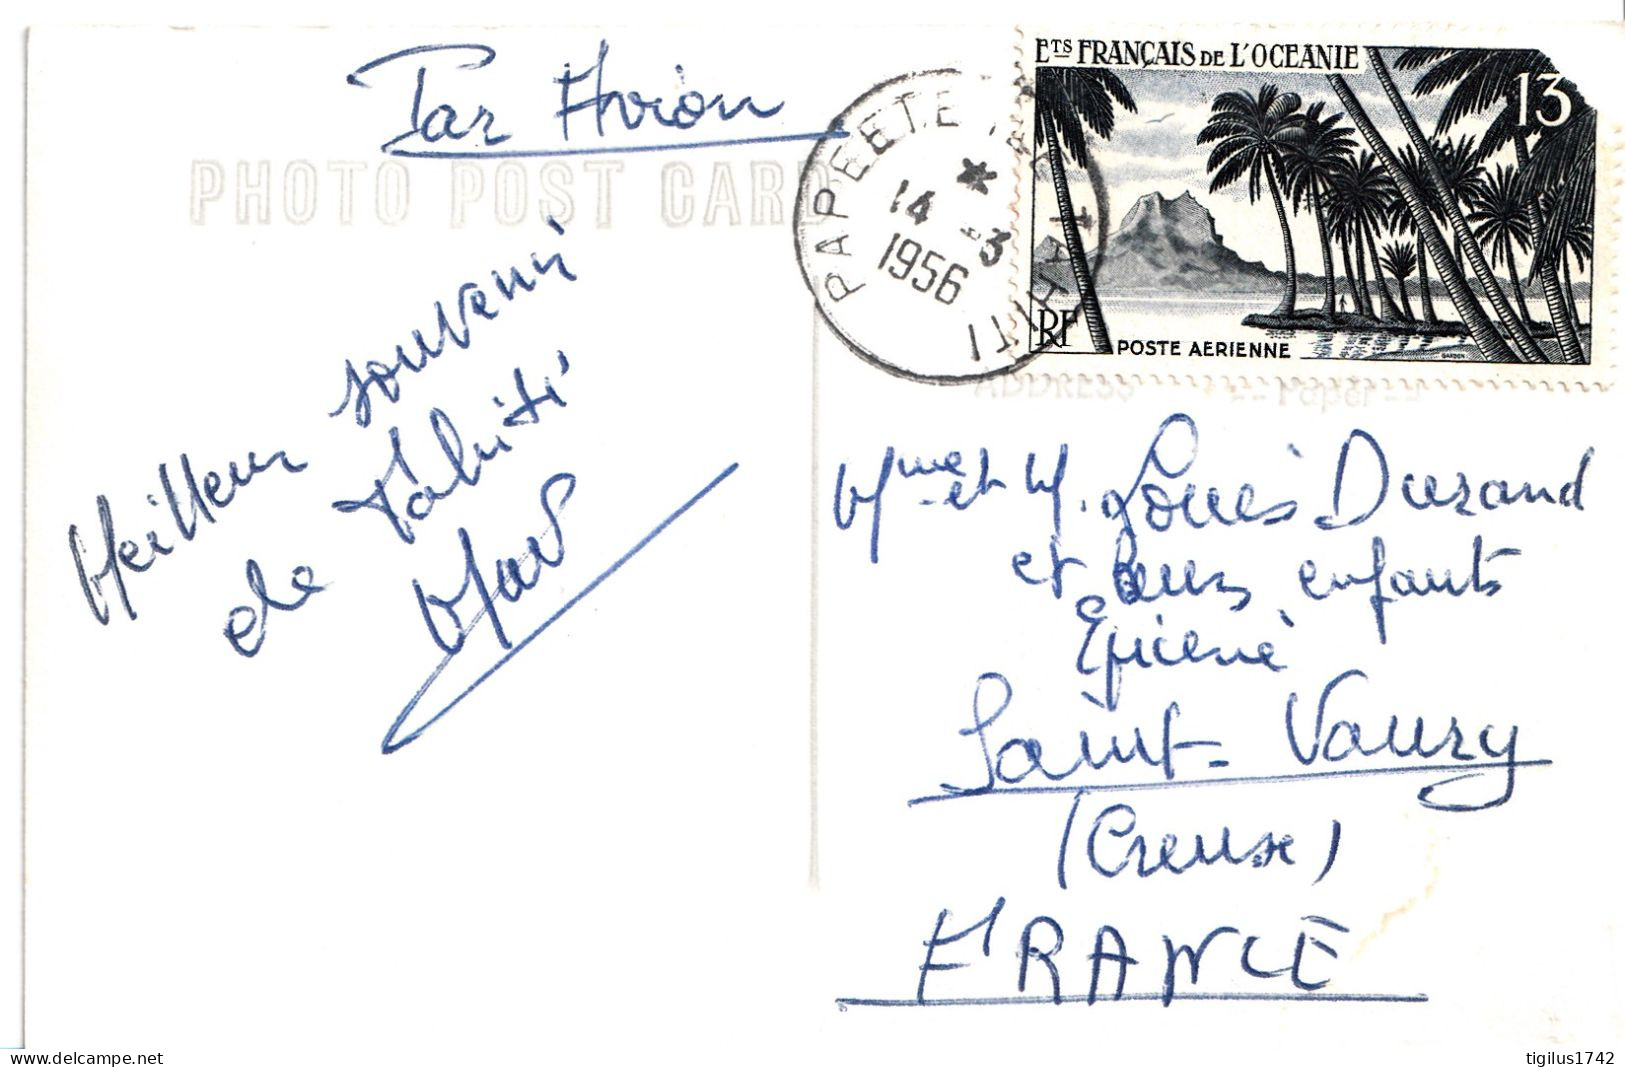 Par Avion
PHOTO POST CARD
Meilleur souvenir
de Tahiti
PAPEETE TAHITI
*
14 -3
1956
Ets FRANÇAIS DE L'OCEANIE
13
RF
POSTE AERIENNE
GANDON
ADDRESS
Paper
Mme et M. Louis Durand
et leurs enfants
Epicerie
Saint-Vaury
(Creuse)
FRANCE
tigilus1742
delcampe.net